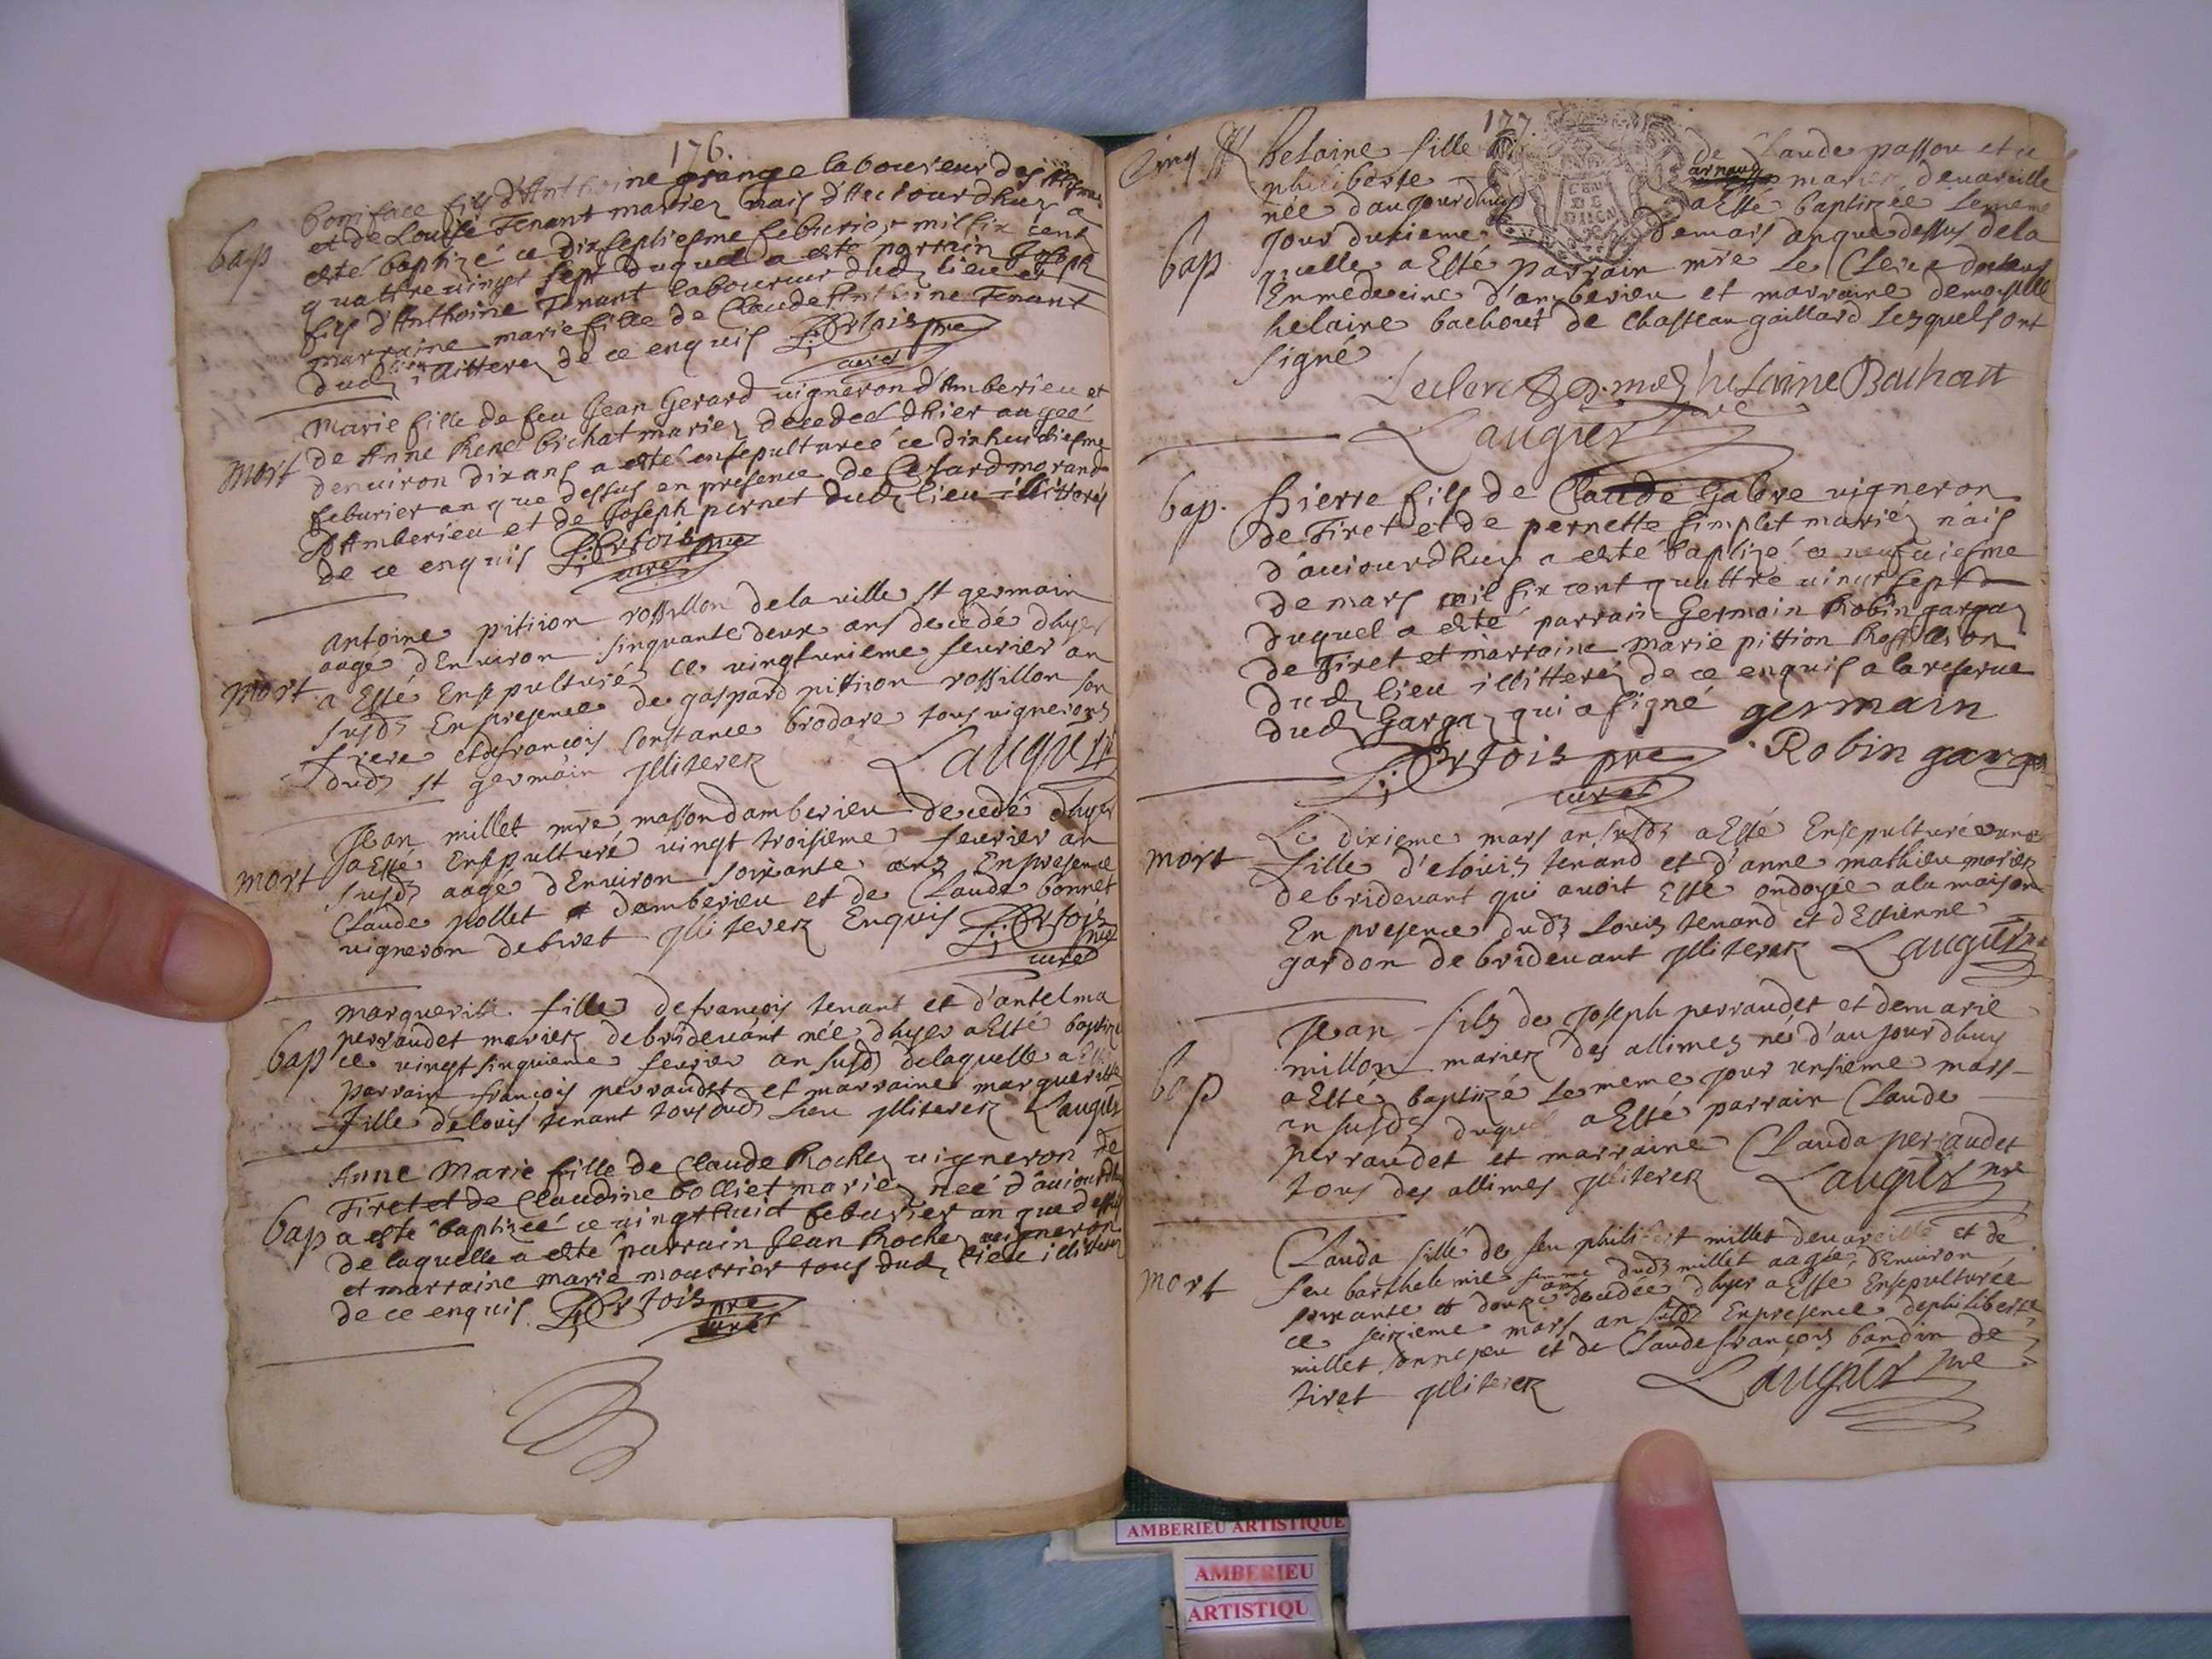 176.
bap
Boniface fils d'Anthoine grange laboureur des allimes
et de Louise Tenant mariez nais d'auiourdhuy a
esté baptizé ce dixseptiesme feburier mil six cent
quattre uingt sept duquel a esté parrain Joseph
fils d'Anthoine Tenant laboureur dud lieu et
marraine marie fille de Claude Anthoine Tenant
dud lieu illitterez de ce enquis pre
curé
mort
Marie fille de feu Jean Gerard uigneron d'Amberieu et
de Anne René Bichat mariez decedeé dhier aageé
denuiron dix ans a esté ensepultureé ce dixhuictiesme
feburier an que dessus en presence de Cesard morand
d'Amberieu et de Joseph pernet dud lieu illitterés
de ce enquis pre
curé
mort
Antoine pition rossillon de la ville st germain
aagé dEnuiron sinquante deux ans decedé dhyer
a Esté Ensepulturé ce vingtunieme feurier an
susd En presence de gaspard pition rossillon son
frere et de francois Constance brodare tous uignerons
dud st germain jlliterez Laugier
mort
Jean millet mre masson damberieu decedé dhyer
a Esté Ensepulturé vingt troisieme feurier an
susd aagé dEnuiron soixante ans En presence
Claude pollet damberieu et de Claude bonnet
uigneron de tiret jlliterez Enquis pre
curé
bap
marguerite fille de francois tenant et d'antelma
perraudet mariez de bridevant née dhyer a Esté baptizé
ce vingt sinquieme feurier an susd de laquelle a Esté
parrain francois perraudet et marraine marguerite
fille de louis tenant tous dud Lieu jlliterez Laugier
bap
Anne Marie fille de Claude Rochez uigneron de
Tiret et de Claudine bolliet mariez neé d'auiourdhuy
a esté baptizeé ce uingt huict feburier an que dessus
de laquelle a esté parrain Jean Rochez uigneron
et marraine marie mourrier tous dud lieu illitterez
de ce enquis pre
curé
177
Cinq
bap
helaine fille de Claude passou et de
philiberte arnaud mariez de uareille
née d'aujourdhuy a Esté baptizée le meme
jour dusieme de mars an que dessus de la
quelle a Esté parrain mre Le Clerc docteur
En medecine d'amberieu et marraine demoiselle
helaine bachout de Chasteau gaillard lesquels ont
signé
Leclerc D. med helainne Bachout
Laugier pre
bap.
Pierre fils de Claude Galore uigneron
de Tiret et de pernette simplet mariéz nais
d'auiourdhuy a esté baptizé ce neufuiesme
de mars mil six cent quattre uingt sept
duquel a esté parrain Germain Robin gargaz
de Tiret et marraine Marie pittion Rossillion
dud lieu illitteréz de ce enquis a la reserue
dud Gargaz qui a signé germain
Robin gargaz
pre
curé
mort
Le dixieme mars an susd a Esté Ensepulturée une
fille d'elouis tenand et d'anne mathieu mariez
de bridevant qui auoit Esté ondoyée a la maison
En presence dud Louis tenand et d'Estienne
gardon de bridevant jlliterez Laugier pre
bap
Jean fils de Joseph perraudet et de marie
millon mariez des allimes né d'aujourdhuy
a Esté baptizé le meme jour unsieme mars
an susd duquel a Esté parrain Claude
perraudet et marraine Clauda perraudet
tous des allimes jlliterez Laugier pre
mort
Clauda fille de feu philibert millet de uareille et de
feu barthelemie femme dud millet aagée dEnuiron
soixante et douze ans decedée dhyer a Esté Ensepulturée
ce seizieme mars an susd En presence de philiberte
millet et de Claude francois bandin de
tiret jlliterez Laugier pre
AMBERIEU ARTISTIQUE
AMBERIEU
ARTISTIQU